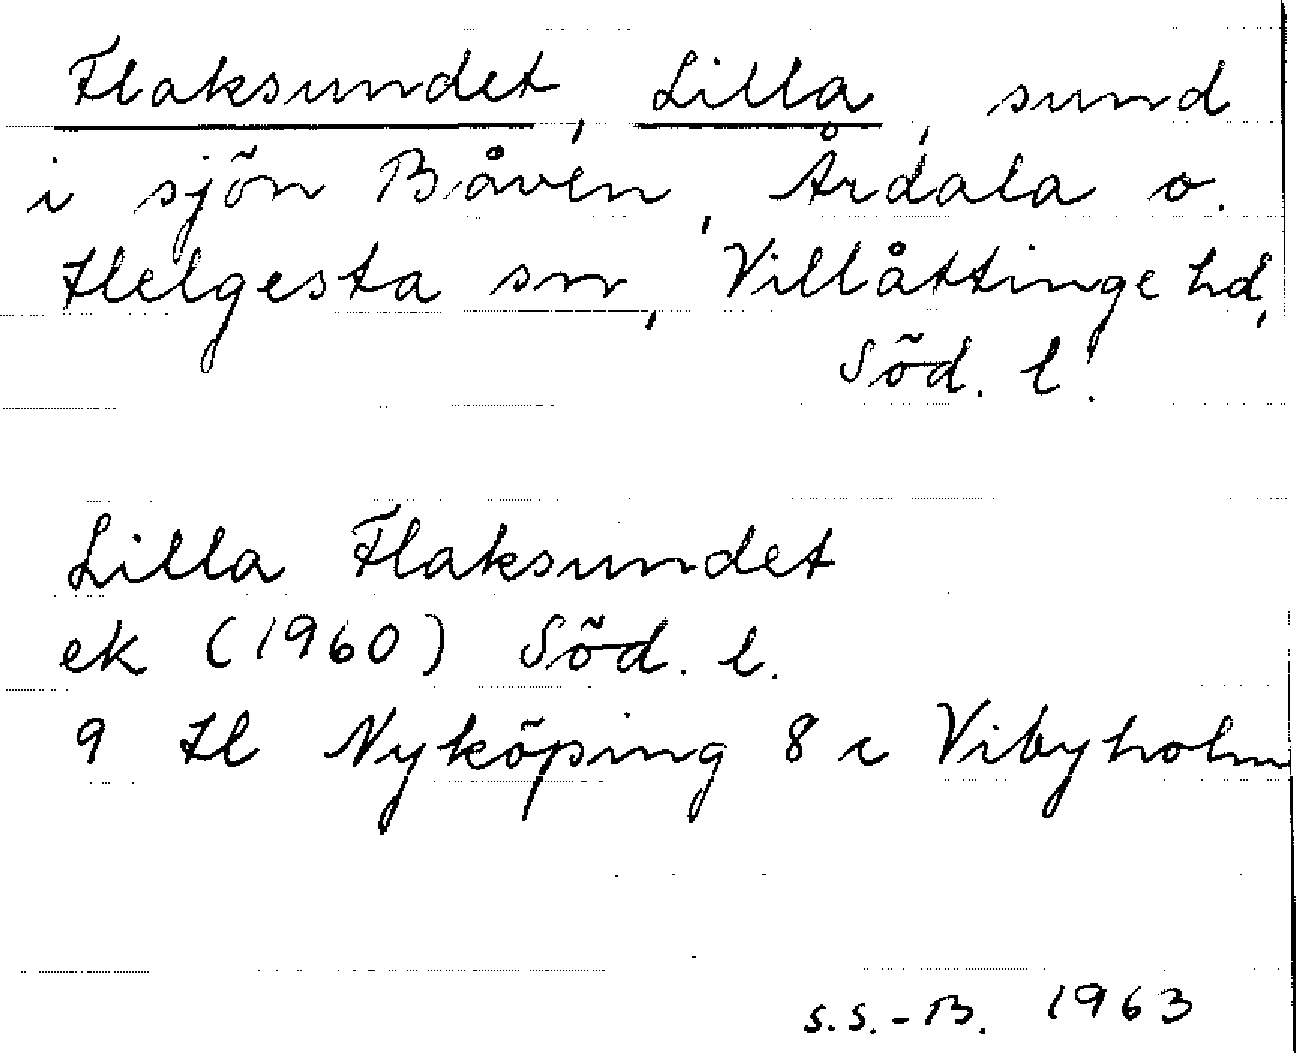 Flaksundet, Lilla, sund
i sjön Båven, Årdala o.
Helgesta snr, Villåttinge hd,
Söd. l.
Lilla Flaksundet
ek (1960) Söd. l.
9 H Nyköping 8 c Vibyholm
S.S.-B. 1963